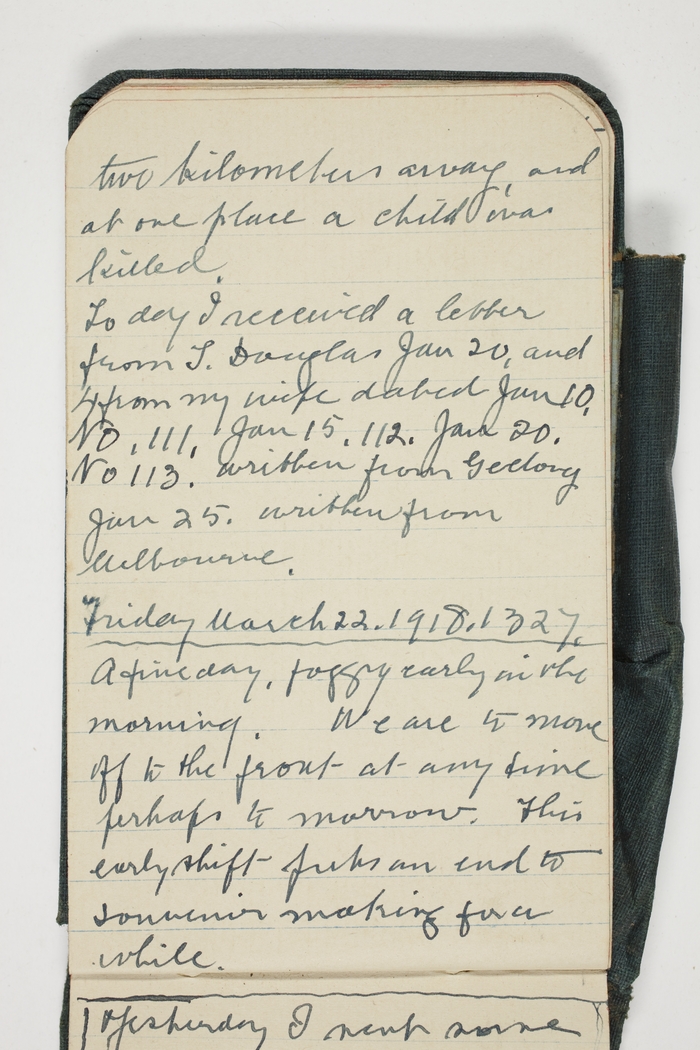 two kilometers away, and
at one place a child was
killed.
To day I received a letter
from T. Douglas Jan 20, and
4 from my wife dated Jan 10,
No, 111, Jan 15. 112. Jan 20.
No 113. written from Geelong
Jan 25. written from
Melbourne.
Friday March 22. 1918. 1327.
A fine day, foggy early in the
morning. We are to move
off to the front at any time
perhaps to morrow. This
early shift puts an end to
souvenir making for a
while.
Yesterday I sent some